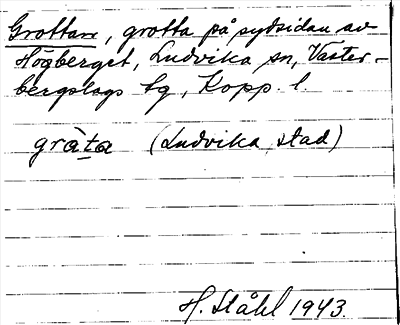 Grottan, grotta på sydsidan av
Högberget, Ludvika sn, Väster-
bergslags tg, Kopp. l.
gràta (Ludvika stad)
H. Ståhl 1943